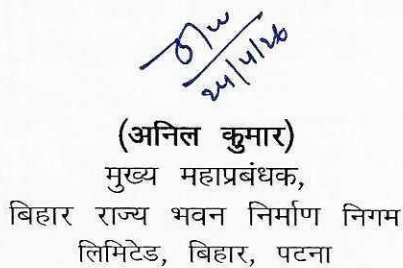 24/4/26
(अनिल कुमार)
मुख्य महाप्रबंधक,
बिहार राज्य भवन निर्माण निगम
लिमिटेड, बिहार, पटना